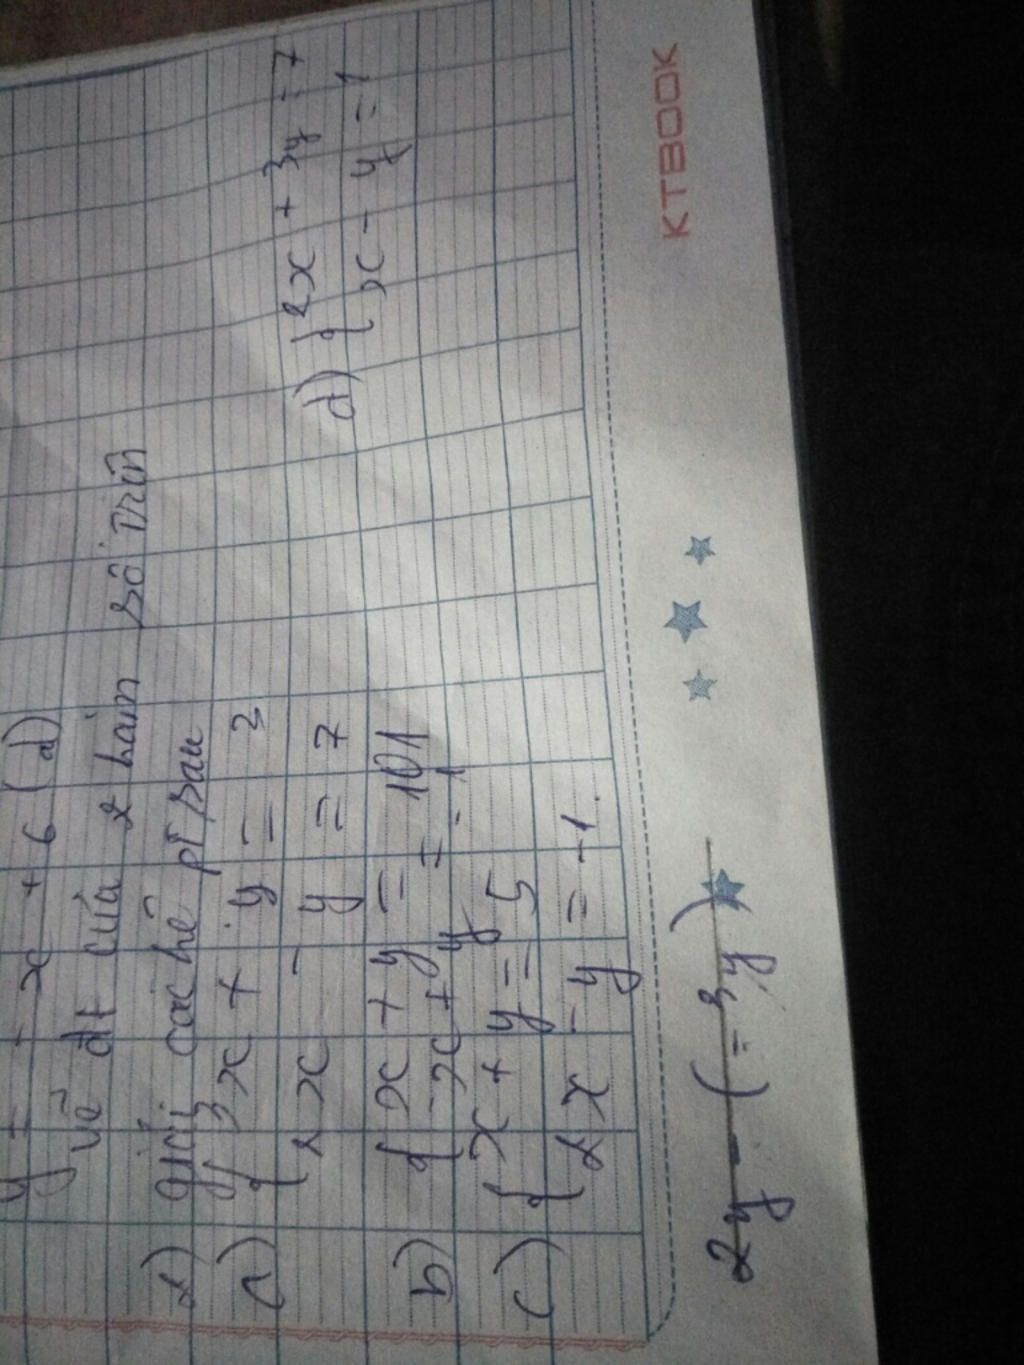 y = - x + 6 (d)
vẽ đt của 2 hàm số trên
2) giải các hệ pt sau
a) { 3x + y = 3
2x - y = 7
b) { x + y = 101
-x + y = -1
c) { x + y = 5
2x - y = -1.
d) { 2x + 3y = 7
x - y = 1
2y - (-3y)
KTBOOK